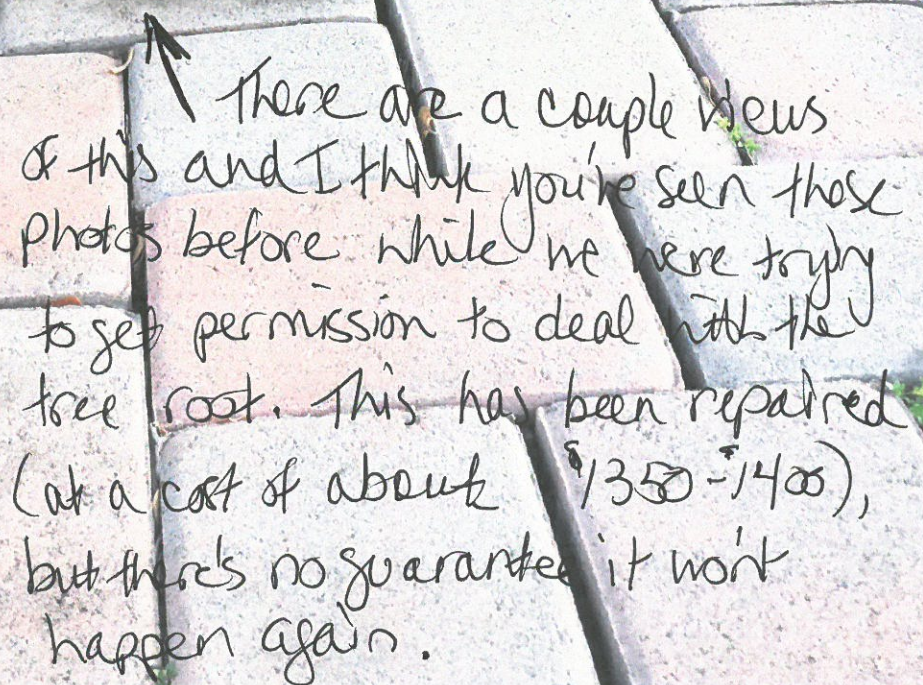 There are a couple views
of this and I think you've seen these
photos before while we were trying
to get permission to deal with the
tree root. This has been repaired
(at a cost of about $1350-$1400),
but there's no guarantee it won't
happen again.